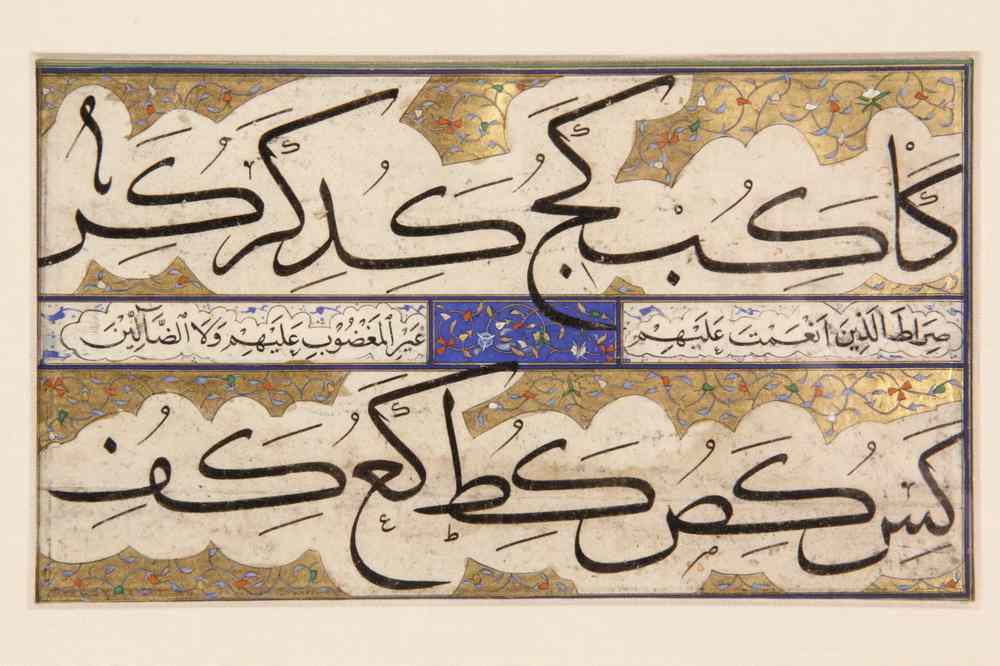 كا كب كج كد كر كر
صراط الذين انعمت عليهم غير المغضوب عليهم ولا الضالين
كس كص كط كع كف